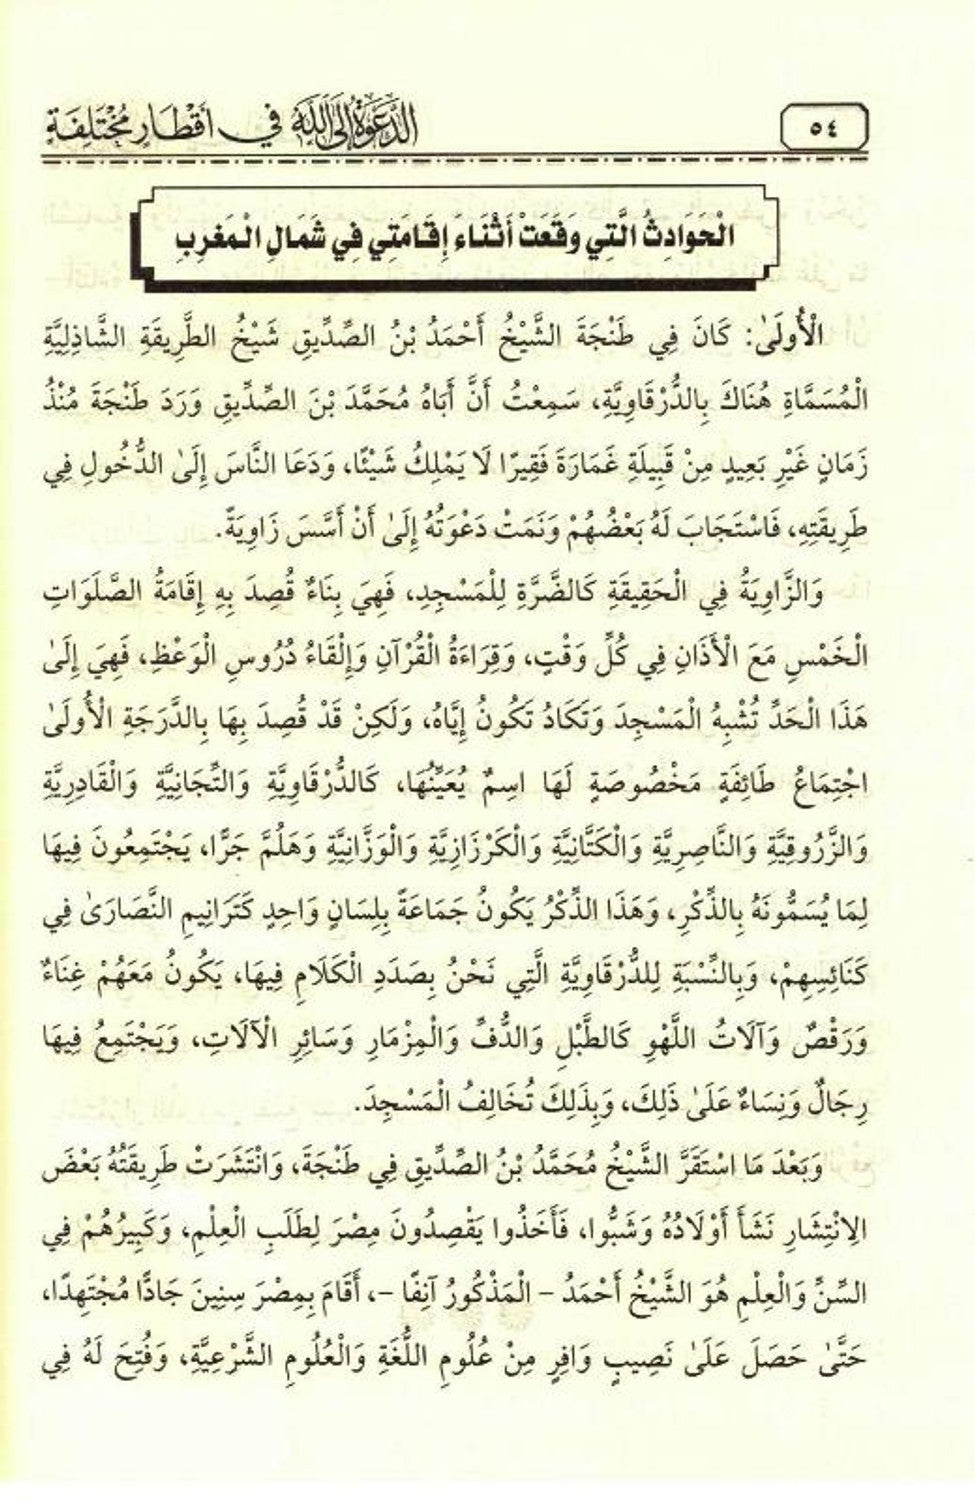 ٥٤
الدَّعْوَةُ إِلَى اللَّهِ فِي أَقْطَارٍ مُخْتَلِفَةٍ
الْحَوَادِثُ الَّتِي وَقَعَتْ أَثْنَاءَ إِقَامَتِي فِي شَمَالِ الْمَغْرِبِ
الْأُولَىٰ: كَانَ فِي طَنْجَةَ الشَّيْخُ أَحْمَدُ بْنُ الصِّدِّيقِ شَيْخُ الطَّرِيقَةِ الشَّاذِلِيَّةِ
الْمُسَمَّاةِ هُنَاكَ بِالدُّرْقَاوِيَّةِ، سَمِعْتُ أَنَّ أَبَاهُ مُحَمَّدَ بْنَ الصِّدِّيقِ وَرَدَ طَنْجَةَ مُنْذُ
زَمَانٍ غَيْرِ بَعِيدٍ مِنْ قَبِيلَةِ غَمَارَةَ فَقِيرًا لَا يَمْلِكُ شَيْئًا، وَدَعَا النَّاسَ إِلَىٰ الدُّخُولِ فِي
طَرِيقَتِهِ، فَاسْتَجَابَ لَهُ بَعْضُهُمْ وَنَمَتْ دَعْوَتُهُ إِلَىٰ أَنْ أَسَّسَ زَاوِيَةً.
وَالزَّاوِيَةُ فِي الْحَقِيقَةِ كَالضَّرَّةِ لِلْمَسْجِدِ، فَهِيَ بِنَاءٌ قُصِدَ بِهِ إِقَامَةُ الصَّلَوَاتِ
الْخَمْسِ مَعَ الْأَذَانِ فِي كُلِّ وَقْتٍ، وَقِرَاءَةُ الْقُرْآنِ وَإِلْقَاءُ دُرُوسِ الْوَعْظِ، فَهِيَ إِلَىٰ
هَذَا الْحَدِّ تُشْبِهُ الْمَسْجِدَ وَتَكَادُ تَكُونُ إِيَّاهُ، وَلَكِنْ قَدْ قُصِدَ بِهَا بِالدَّرَجَةِ الْأُولَىٰ
اجْتِمَاعُ طَائِفَةٍ مَخْصُوصَةٍ لَهَا اسِمٌ يُعَيِّنُهَا، كَالدُّرْقَاوِيَّةِ وَالتِّجَانِيَّةِ وَالْقَادِرِيَّةِ
وَالزَّرُوقِيَّةِ وَالنَّاصِرِيَّةِ وَالْكَتَّانِيَّةِ وَالْكَرْزَازِيَّةِ وَالْوَزَّانِيَّةِ وَهَلُمَّ جَرًّا، يَجْتَمِعُونَ فِيهَا
لِمَا يُسَمُّونَهُ بِالذِّكْرِ، وَهَذَا الذِّكْرُ يَكُونُ جَمَاعَةً بِلِسَانٍ وَاحِدٍ كَتَرَانِيمِ النَّصَارَىٰ فِي
كَنَائِسِهِمْ، وَبِالنِّسْبَةِ لِلدُّرْقَاوِيَّةِ الَّتِي نَحْنُ بِصَدَدِ الْكَلَامِ فِيهَا، يَكُونُ مَعَهُمْ غِنَاءٌ
وَرَقْصٌ وَآلَاتُ اللَّهْوِ كَالطَّبْلِ وَالدُّفِّ وَالْمِزْمَارِ وَسَائِرِ الْآلَاتِ، وَيَجْتَمِعُ فِيهَا
رِجَالٌ وَنِسَاءٌ عَلَىٰ ذَلِكَ، وَبِذَلِكَ تُخَالِفُ الْمَسْجِدَ.
وَبَعْدَ مَا اسْتَقَرَّ الشَّيْخُ مُحَمَّدُ بْنُ الصِّدِّيقِ فِي طَنْجَةَ، وَانْتَشَرَتْ طَرِيقَتُهُ بَعْضَ
الِانْتِشَارِ نَشَأَ أَوْلَادُهُ وَشَبُّوا، فَأَخَذُوا يَقْصِدُونَ مِصْرَ لِطَلَبِ الْعِلْمِ، وَكَبِيرُهُمْ فِي
السِّنِّ وَالْعِلْمِ هُوَ الشَّيْخُ أَحْمَدُ - الْمَذْكُورُ آنِفًا -، أَقَامَ بِمِصْرَ سِنِينَ جَادًّا مُجْتَهِدًا،
حَتَّىٰ حَصَلَ عَلَىٰ نَصِيبٍ وَافِرٍ مِنْ عُلُومِ اللُّغَةِ وَالْعُلُومِ الشَّرْعِيَّةِ، وَفُتِحَ لَهُ فِي